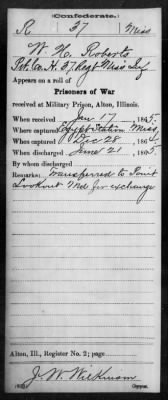 Confederate.
R 27 Miss
W. H. Roberts
Pvt. Co. H. 27 Regt Miss Inf.
Appears on a roll of
Prisoners of War
received at Military Prison, Alton, Illinois.
When received Jan 17, 1865.
Where captured Egypt Station Miss
When captured Dec 28, 186
When discharged June 21, 1865
By whom discharged
Remarks: Transferred to Point
Lookout Md for exchange
Alton, Ill., Register No. 2; page
J. W. Wilkinson
Copyist.